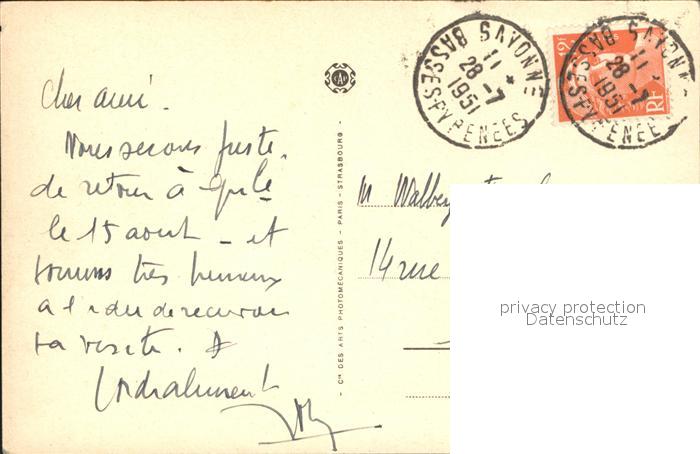 Cher ami.
Nous serons juste
de retour à
le 15 aout - et
sommes très heureux
à l'idée de recevoir
ta visite.
Cordialement
BAYONNE
BASSES-PYRENEES
11
28 -7
1951
BAYONNE
BASSES-PYRENEE
11
28 -7
1951
12F
RF
Cie DES ARTS PHOTOMÉCANIQUES - PARIS - STRASBOURG -
M
14 rue
privacy protection
Datenschutz